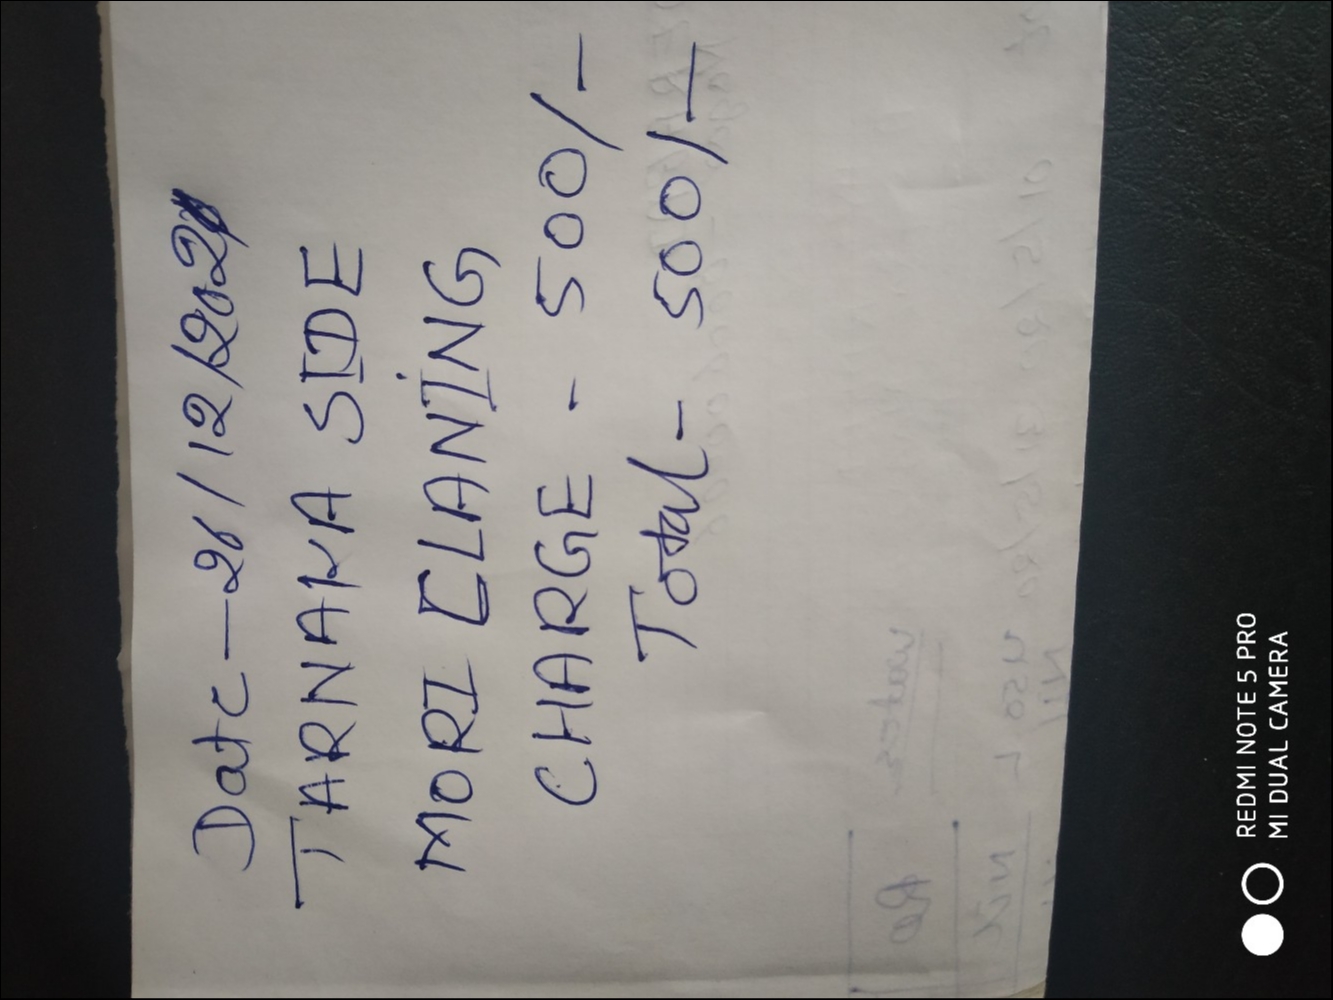 Date - 26/12/2021
TARNAKA SIDE
MORI CLANING
CHARGE - 500/-
Total - 500/-
REDMI NOTE 5 PRO
MI DUAL CAMERA